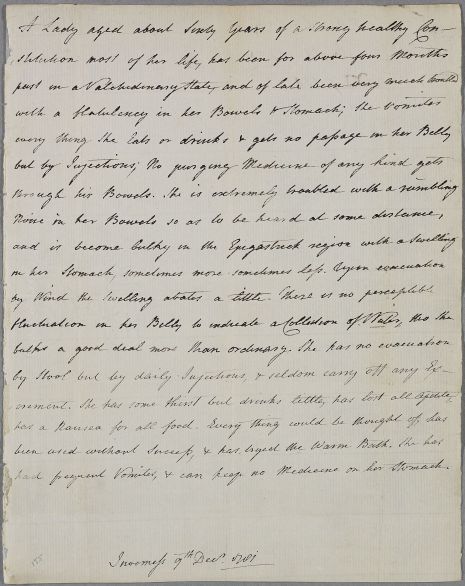 A Lady aged about Sixty Years of a Strong healthy Con-
stitution most of her life, has been for above four Months
past in a Valetudinary State, and of late been very much troubled
with a flatulency in her Bowels & Stomach; She Vomites
every thing She Eats or drinks & gets no passage in her Belly
but by Injections; No purging Medicine of any kind gets
through her Bowels. She is extremely troubled with a rumbling
Noise in her Bowels so as to be heard at some distance,
and is become bulky in the Epigastrick region with a Swelling
in her Stomach, sometimes more sometimes less. Upon evacuation
by Wind the Swelling abates a little. There is no perceptible
fluctuation in her Belly to indicate a Collection of Water, tho she
bulks a good deal more than ordinary. She has no evacuation
by Stool but by daily Injections, & seldom carry off any Ex-
crement. She has some thirst but drinks little, has lost all appetite,
has a Nausea for all food. Every thing could be thought of, has
been used without Success, & has tryed the Warm Bath. She has
had frequent Vomites, & can keep no Medicine on her Stomach.
Inverness 9th Decr. 1781